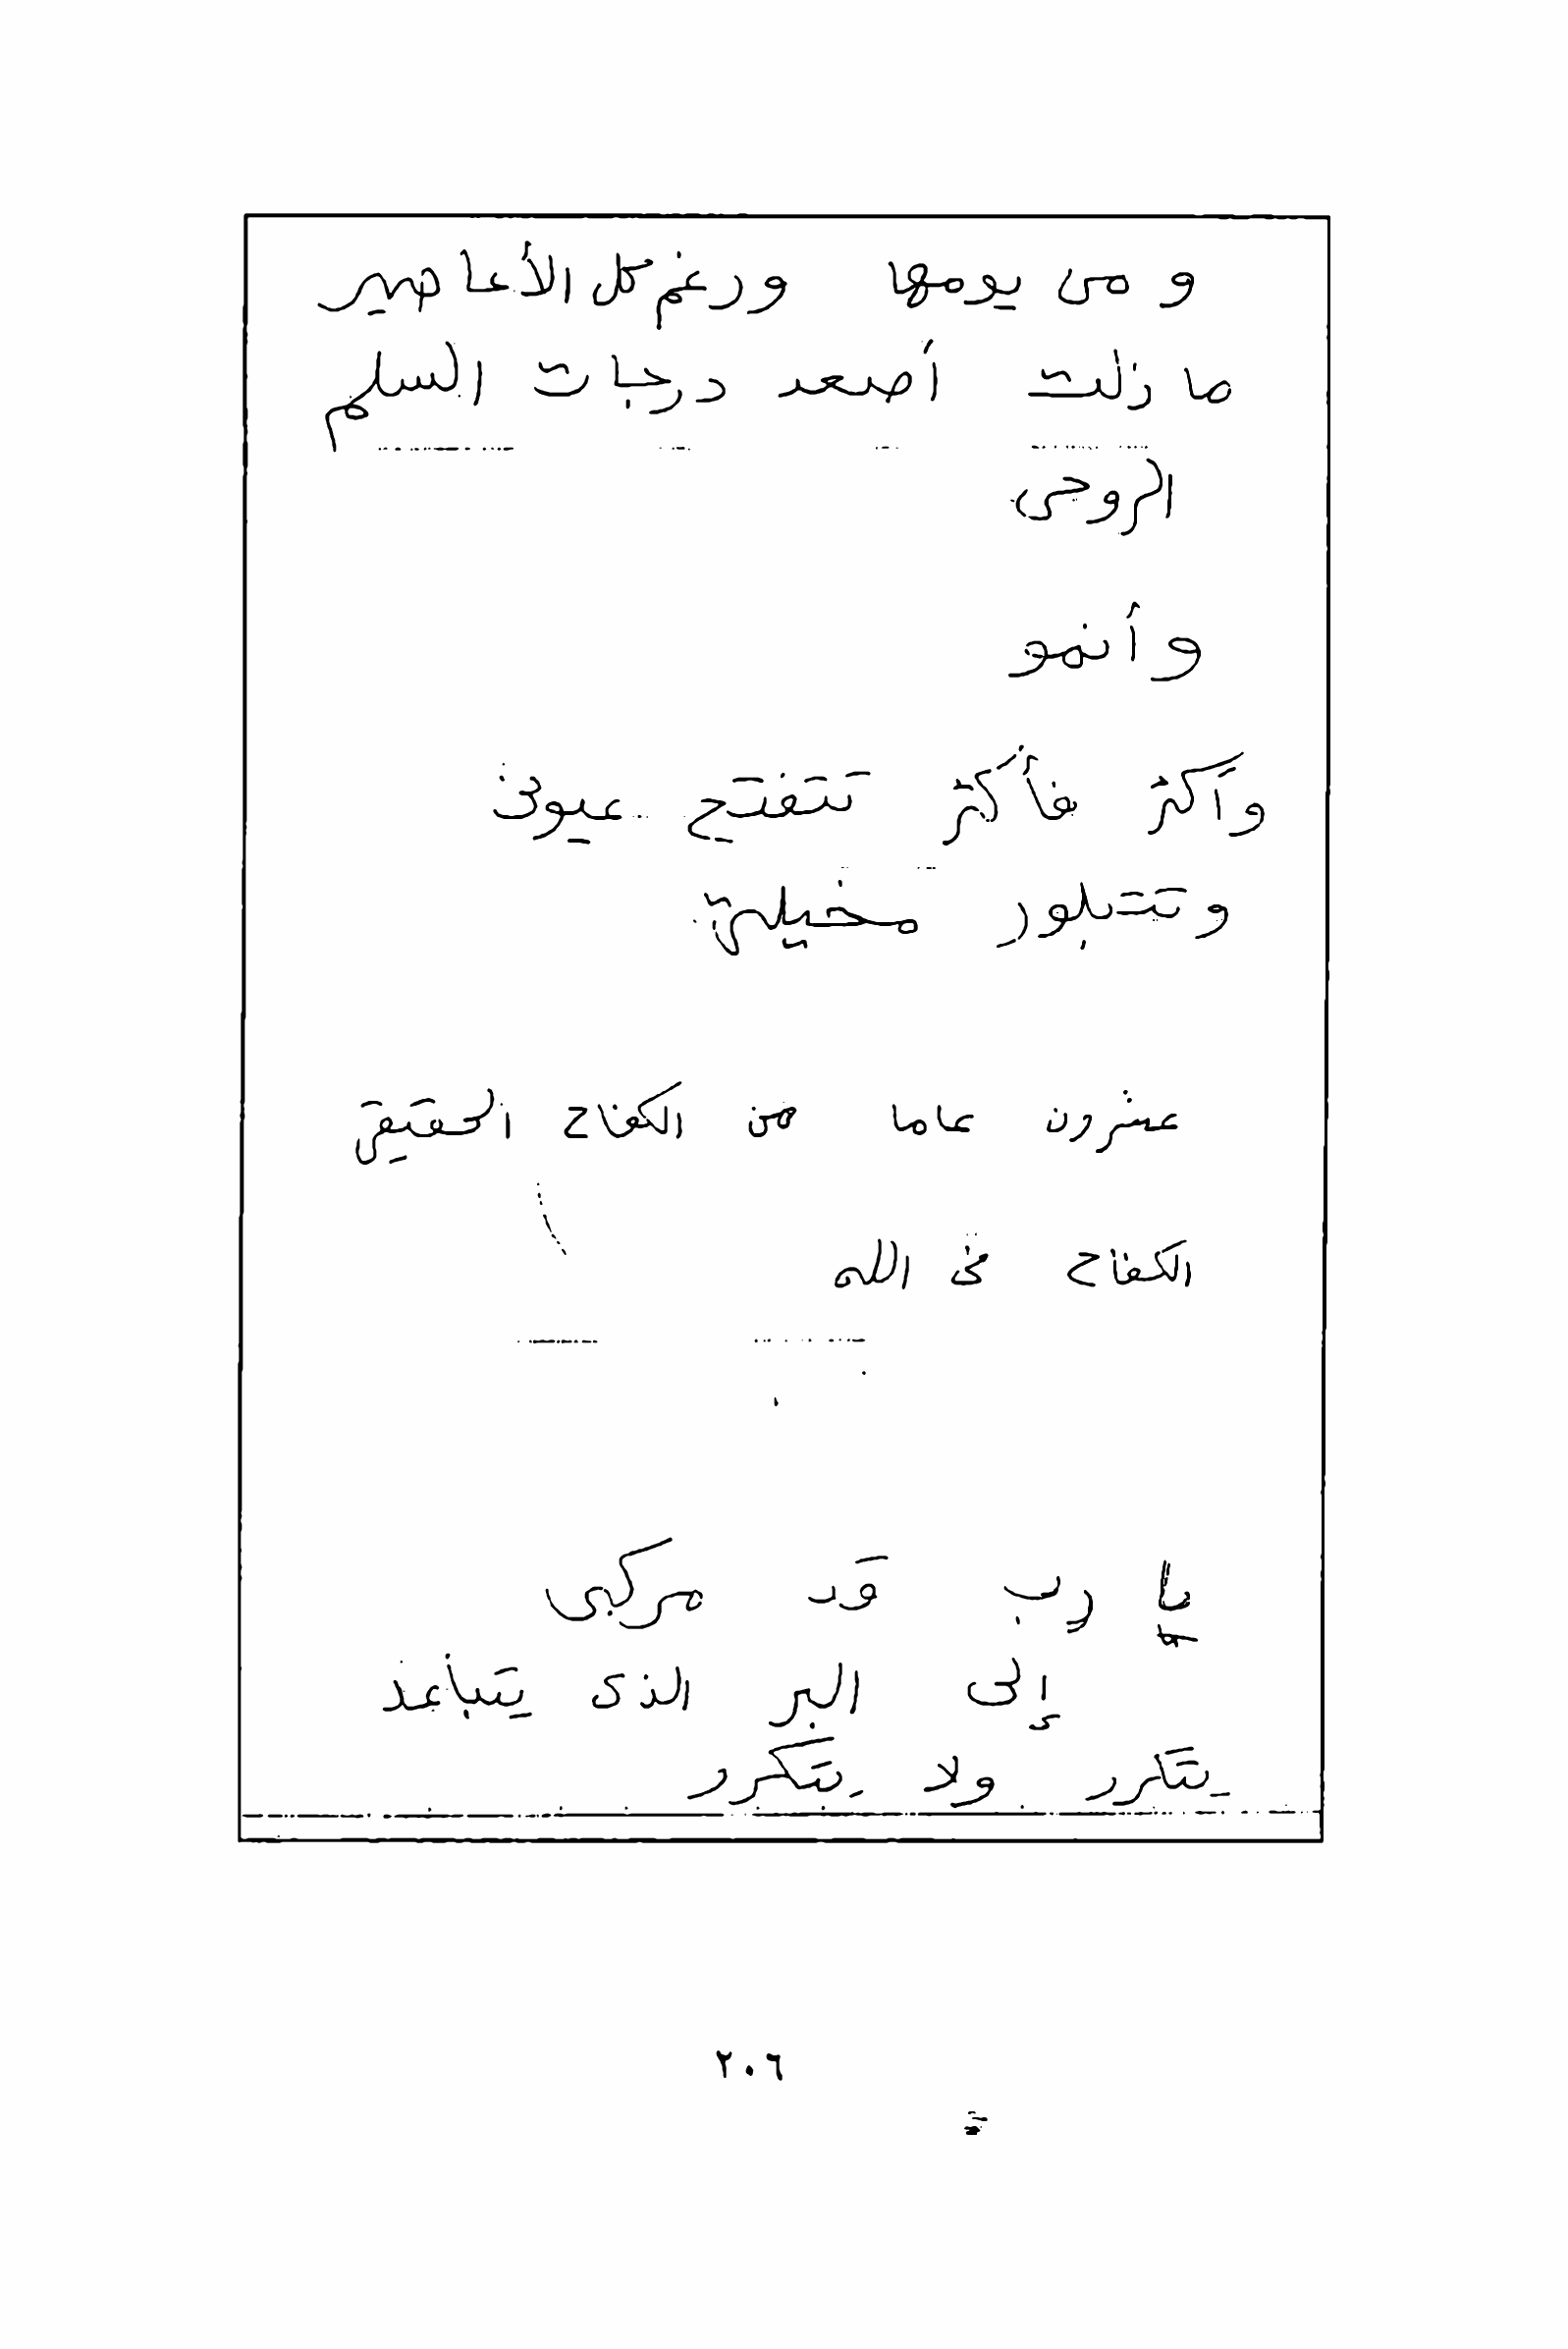 ومن يومها ورغم كل الأعاصير
ما زلت أصعد درجات السلم
الروحى
وأنمو
وأكثر فأكثر تتفتح عيونى
وتتبلور مخيلتى
عشرون عاما من الكفاح الحقيقى
الكفاح فى الله
يا رب قد مركبى
إلى البر الذى يتباعد
يتكرر ولا يتكرر
٢٠٦